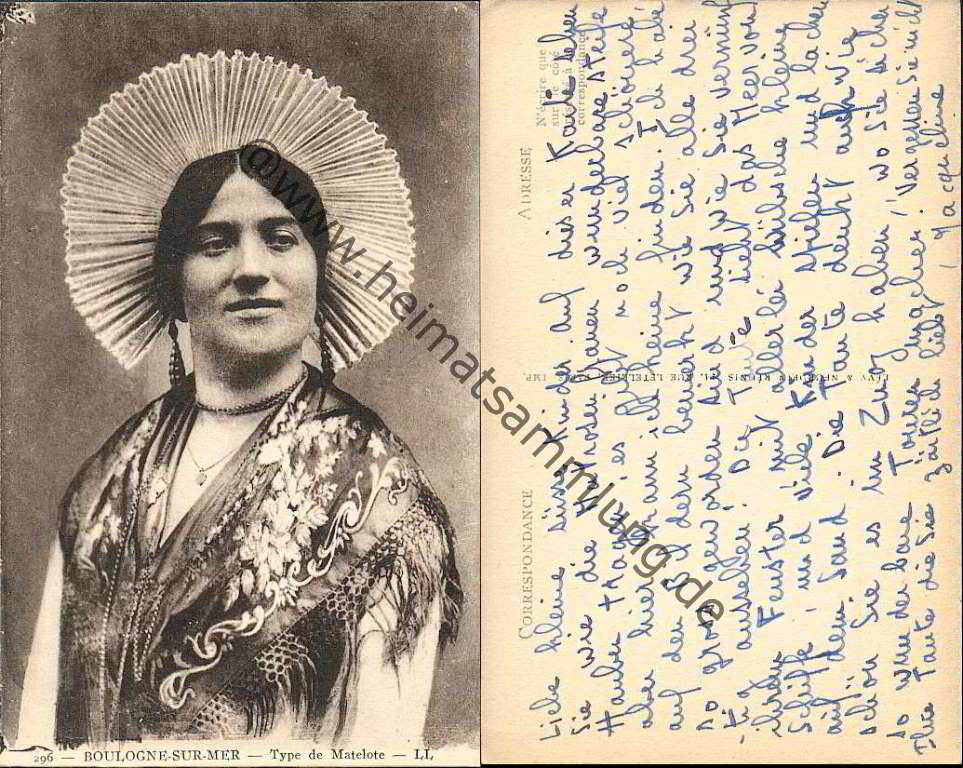 296 — BOULOGNE-SUR-MER — Type de Matelote — LL
www.heimatsammlung.de
CORRESPONDANCE
ADRESSE
N'écrire que
sur le côté
à la
correspondance
LÉVY & NEURDEIN RÉUNIS, 44, RUE LETELLIER, PARIS, IMP.
Liebe kleine Süsskinder auf dieser Karte sehen
Sie wie die Matrosenfrauen wunderbare steife
Hauben tragen, es gibt noch viel schönere
aber hier kann ich keine finden. Ich habe
auf den Bildern bemerkt wie Sie alle drei
so gross geworden sind und wie Sie vernünf
-tig aussehen! Die Tante sieht das Meer von
ihrem Fenster mit allerlei hübsche kleine
Schiffe, und viele Kinder spielen und lachen
auf dem Sand. Die Tante denkt auch wie
schön Sie es im Zuoz haben, wo Sie sicher
so wunderbare Touren machen! Vergessen Sie nicht
Ihre Tante die Sie zärtlich liebt
Jacqueline